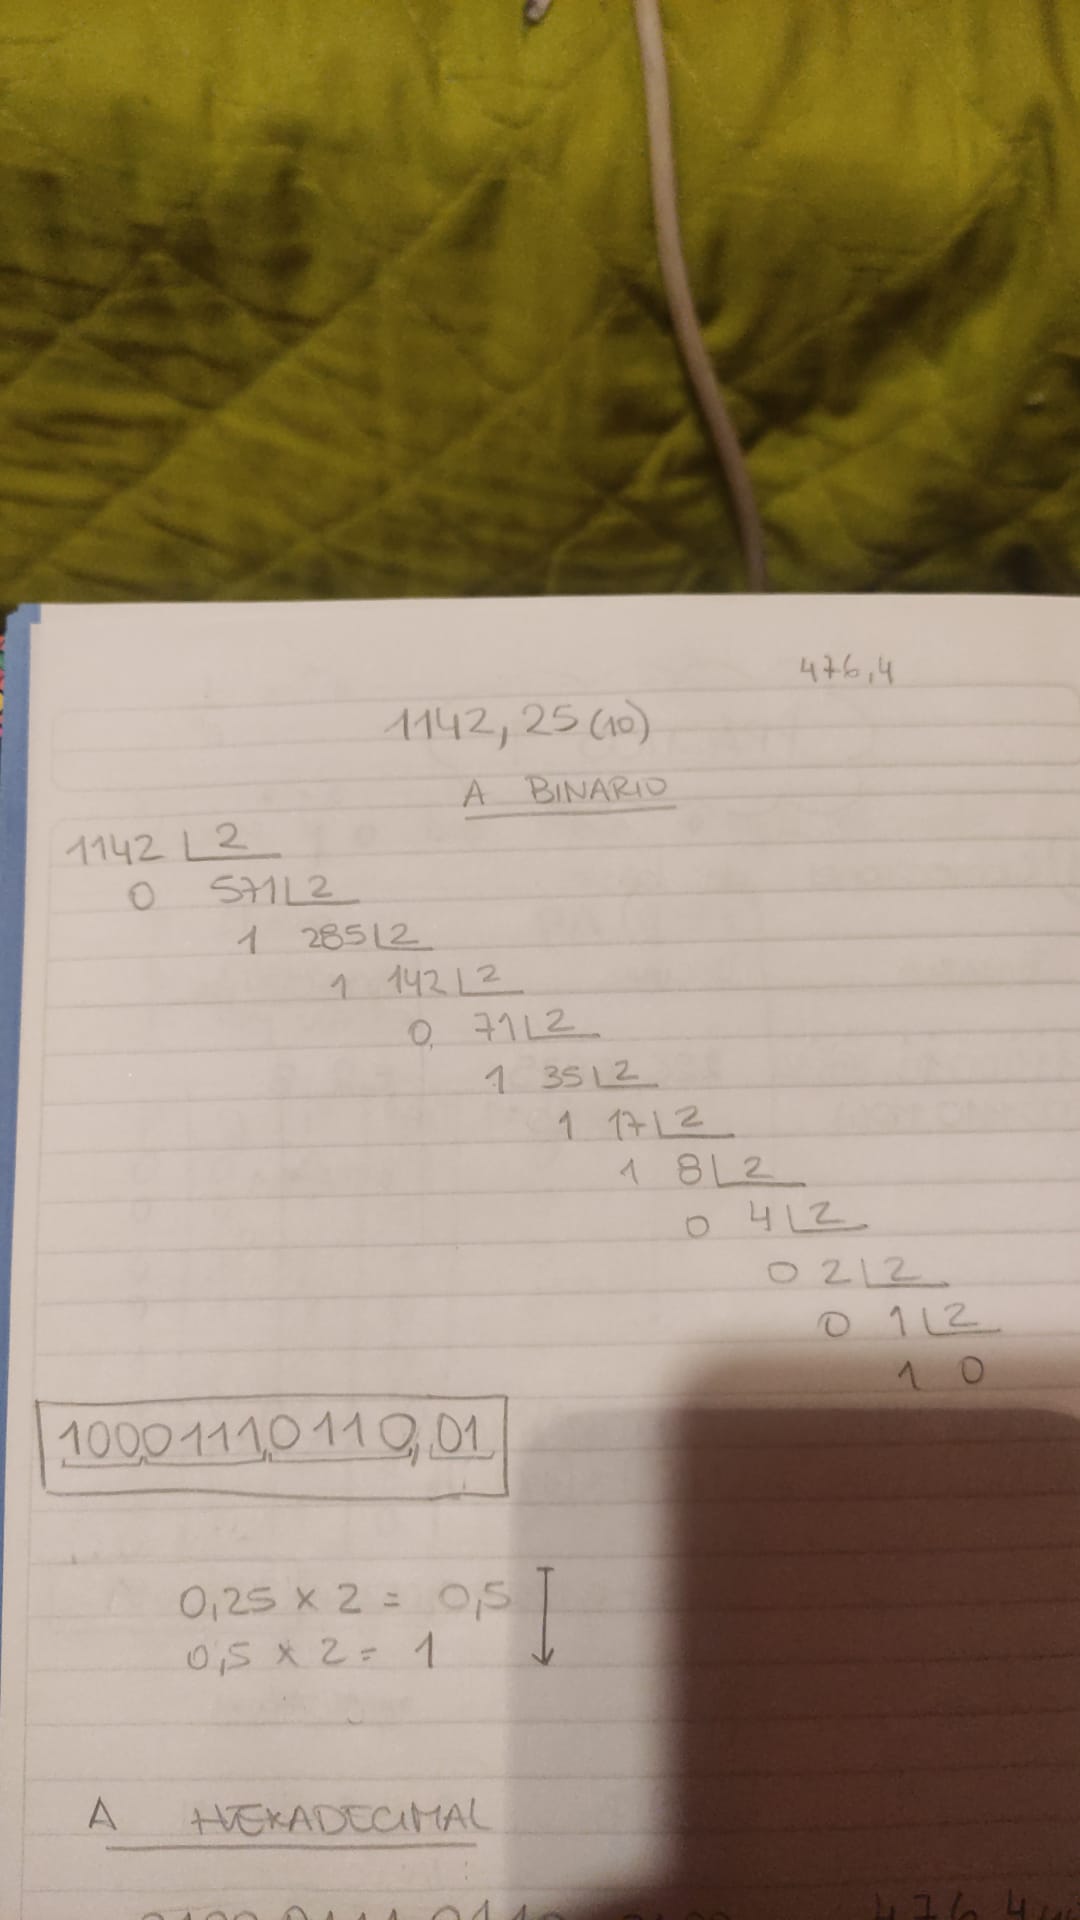 476,4
1142,25(10)
A BINARIO
1142 2
0 571 2
1 285 2
1 142 2
0 71 2
1 35 2
1 17 2
1 8 2
0 4 2
0 2 2
0 1 2
1 0
10001110110,01
0,25 x 2 = 0,5
0,5 x 2 = 1
A HEXADECIMAL